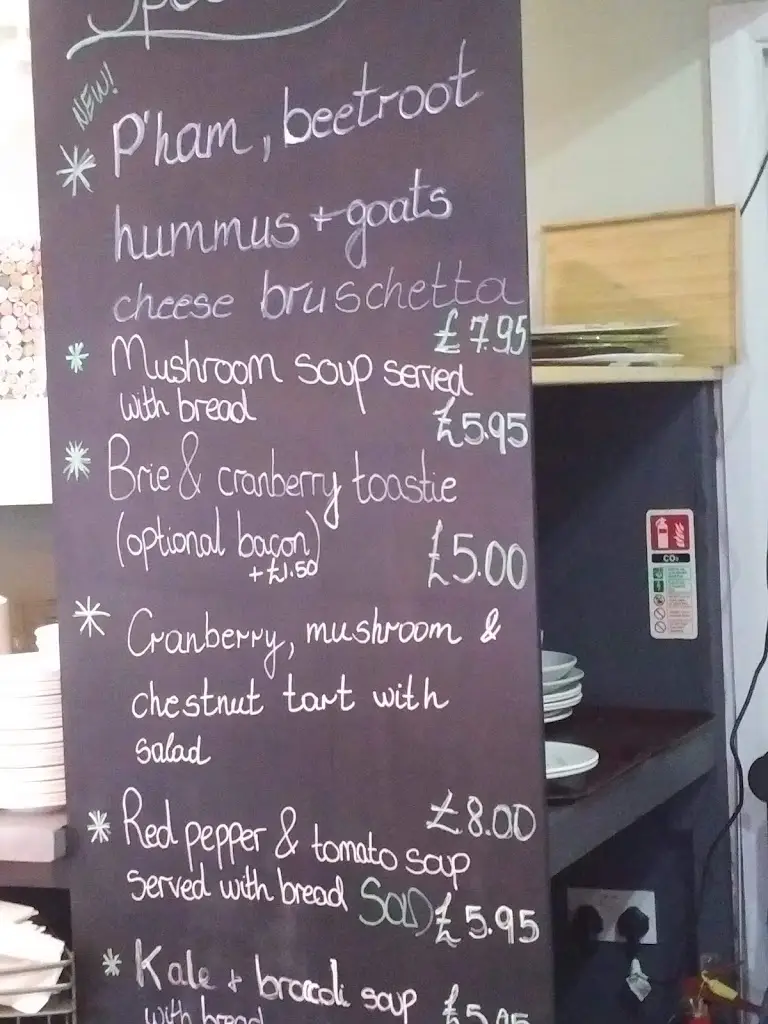 NEW!
* P'ham, beetroot
hummus + goats
cheese bruschetta
£7.95
* Mushroom soup served
with bread
£5.95
* Brie & cranberry toastie
(optional bacon)
+£1.50
£5.00
* Cranberry, mushroom &
chestnut tart with
salad
£8.00
* Red pepper & tomato soup
served with bread SOD £5.95
* Kale + broccoli soup
with bread
CO₂